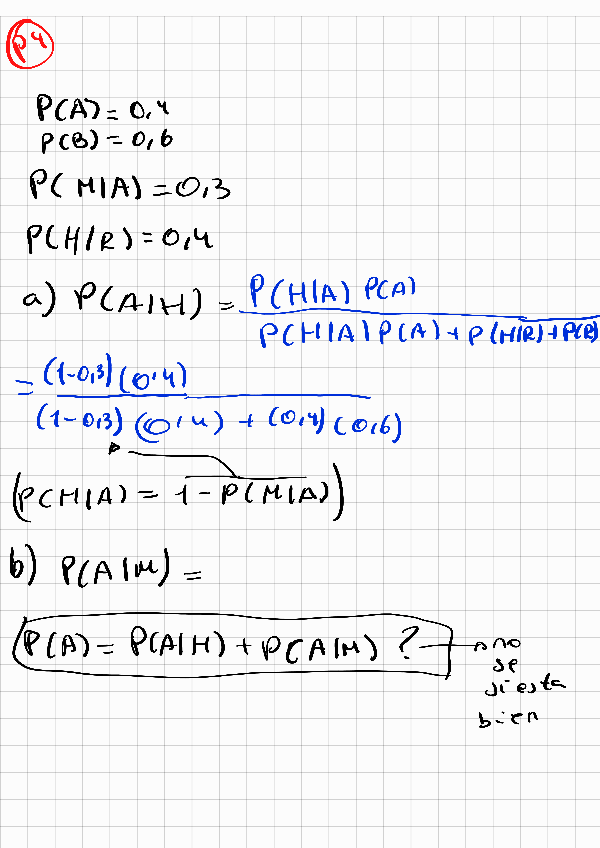 P4
P(A) = 0,4
P(B) = 0,6
P(M/A) = 0,3
P(H/R) = 0,4
a) P(A/H) = P(H/A) P(A)
P(H/A) P(A) + P(H/R) + P(R)
= (1-0,3) (0,4)
(1-0,3) (0,4) + (0,4) (0,6)
(P(H/A) = 1 - P(M/A))
b) P(A/M) =
P(A) = P(A/H) + P(A/M) ? → no
se
si esta
bien